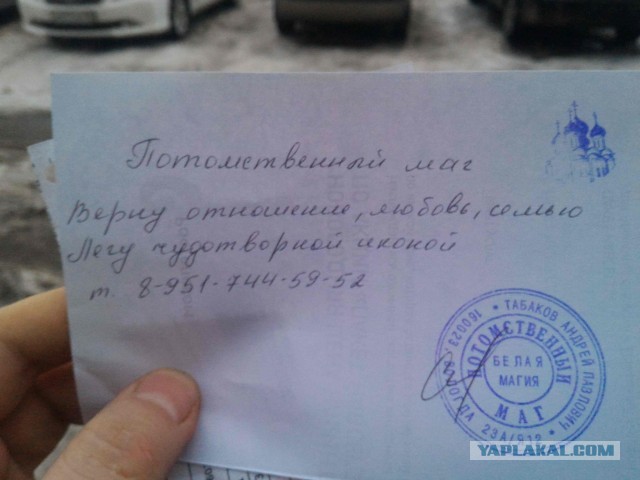 Потомственный маг
Верну отношение, любовь, семью
Легу чудотворной иконой
т. 8-951-744-59-52
160023 * ТАБАКОВ АНДРЕЙ ПАВЛОВИЧ *
ВОЛОГДА 23А/912
ПОТОМСТВЕННЫЙ
МАГ
БЕЛАЯ
МАГИЯ
YAPLAKAL.COM